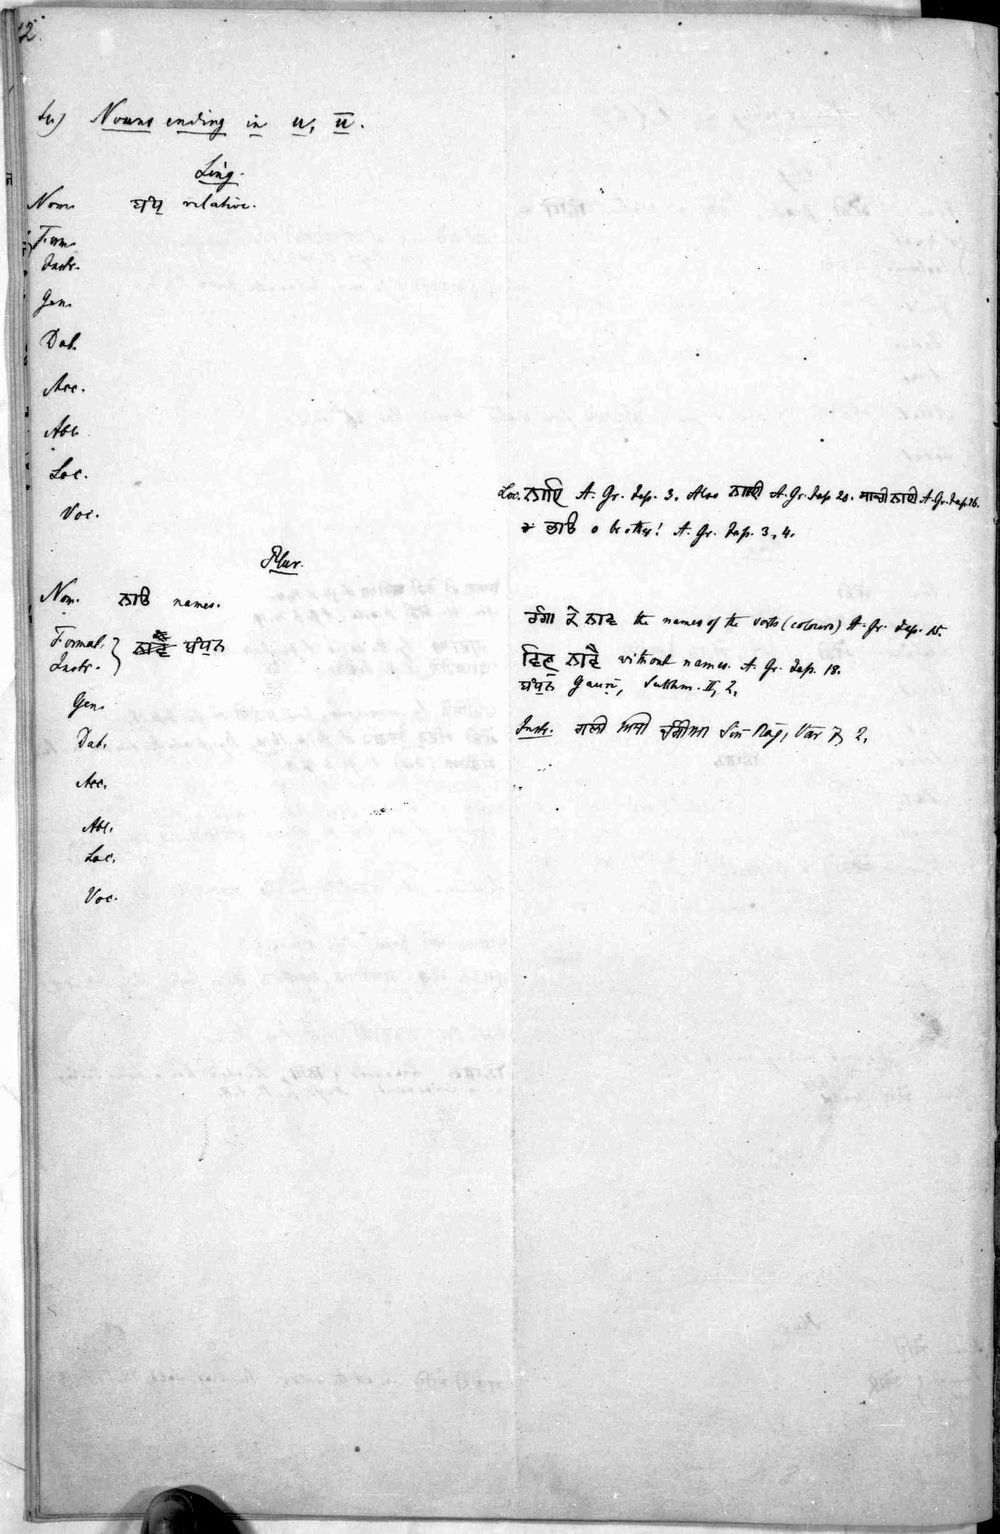 Nouns ending in u, ū.
Sing.
Nom. ਬੰਧੁ relative.
Form.
Instr.
Gen.
Dat.
Acc.
Abl.
Loc.
Loc. ਨਾਇ A. Gr. Jap. 3. Also ਨਾਈ A. Gr. Jap 20. ਸਾਚੀ ਨਾਈ A. Gr. Jap. 26.
Voc.
ਭਾਉ o brother! A. Gr. Jap. 3, 4.
Plur.
Nom. ਨਾਉ names.
ਰੰਗਾ ਕੇ ਨਾਵ the names of the (colours) A. Gr. Jap. 15.
Format. Instr. } ਬੰਧੁਨ
ਵਿਣੁ ਨਾਵੈ without names. A. Gr. Jap. 18.
ਬੰਧੁਨ Gauṛī, Sukhm. II, 2,
Gen.
Instr. ਗਲੀ ਅਸੀ ਚੰਗੀਆ Sirī Rāg, Vār 7, 2.
Dat.
Acc.
Abl.
Loc.
Voc.